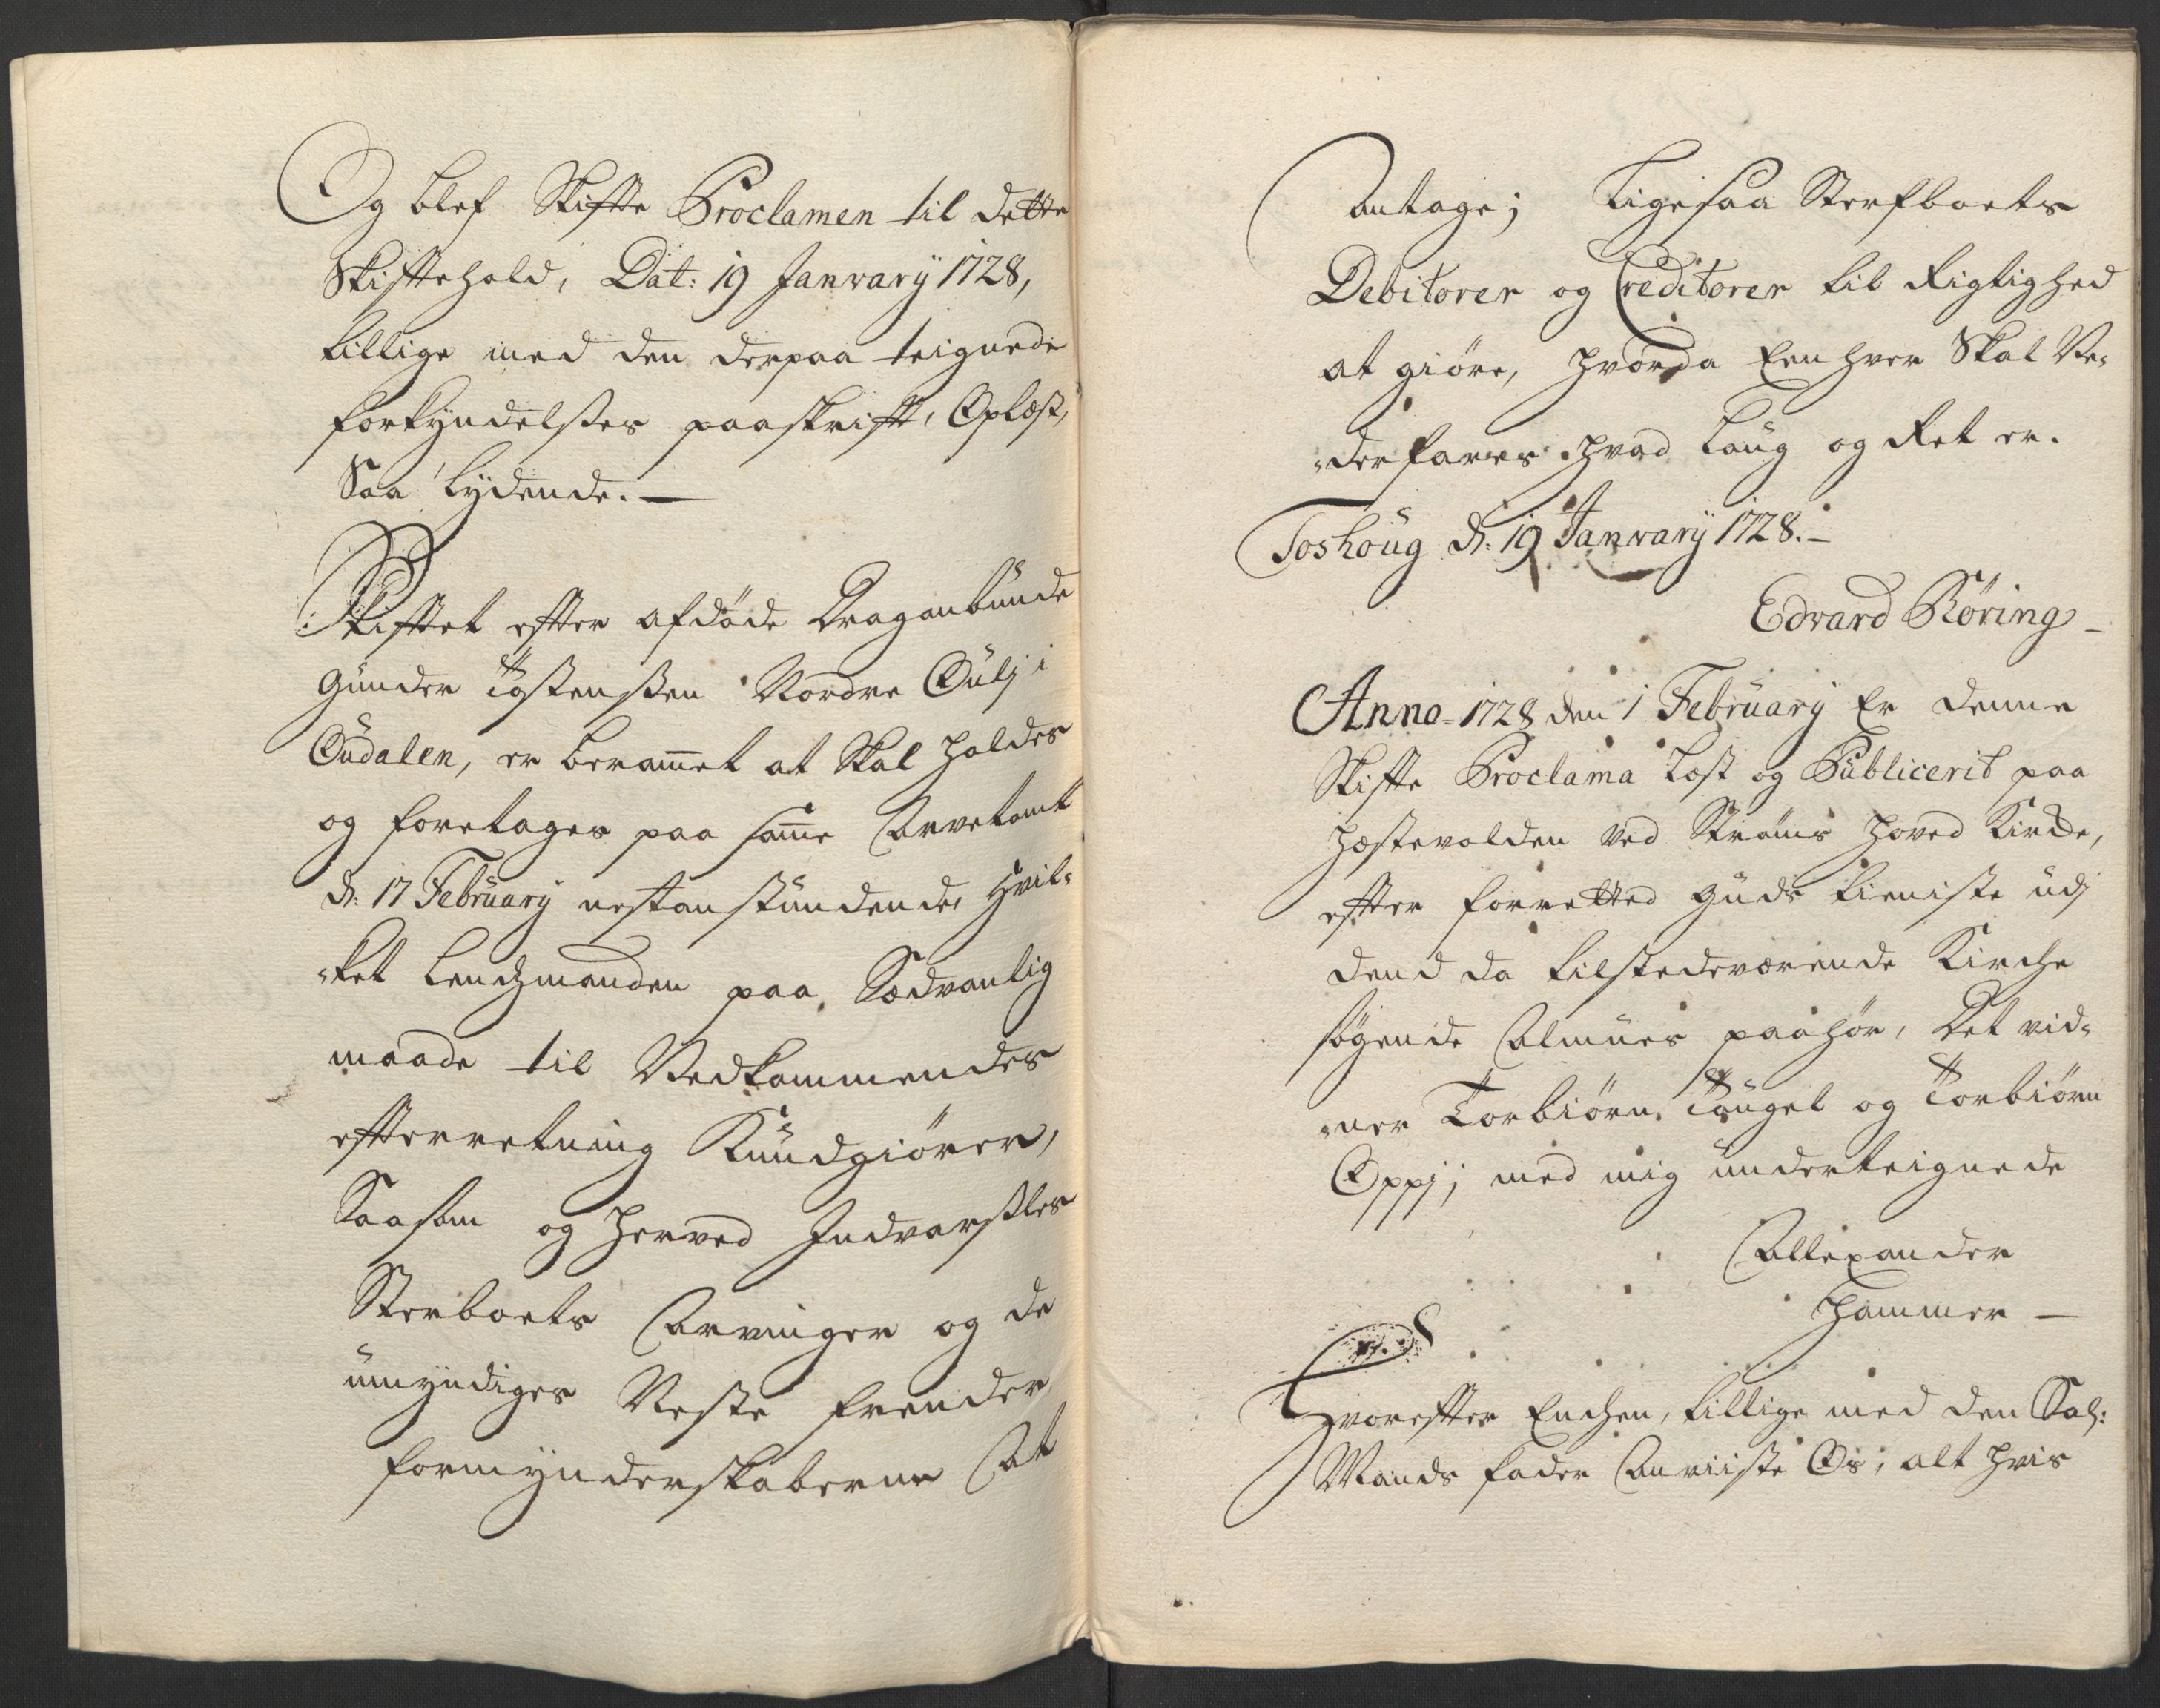 Og blef Skifte Proclamen til dette
Skiftehold, Dat: 19 Janwarÿ 1728,
tillige med den derpaa teignede
forkÿndelses paaskrifft, Oplæst,
Saa lÿdende. —
Skiftet effter afdöde Dragonbunde
Gunder Tostensen Nordre Oulj i
Oudalen, er beramet at Skal holdes
og foretages paa same Arvetomt
d: 17 Februarÿ nestanstundende, hvil-
ket Lendsmanden paa Sædvanlig
maade til Vedkommendes
effterretning Kundgiörer,
Saasom og herved Indvarsles
Sterboets Arvinger og de
umÿndiges Neste frender
formÿnderskaberne At
Antage; Ligesaa Sterfboets
Debitorer og Creditorer til Rigtighed
at giöre, hvorda Een hver Skal Ve-
derfares hvad Laug og Ret er.
Toshoug d: 19 Janwarÿ 1728. —
Edvard Röring —
Anno 1728 den 1 Februarÿ Er denne
Skifte Proclama Læst og Publicerit paa
Hæstevolden ved Ströms Hoved Kircke,
effter forretted Guds tieniste udj
dend da tilstedeværende Kirche
sögende Almues paahör, Det vid-
ner Torbiörn Tougel og Torbiörn
Oppj; med mig underteignede
Allexander
Hammer —
Hvoreffter Enchen, tillige med den Sal:
Mands fader Anviiste Os, alt hvis